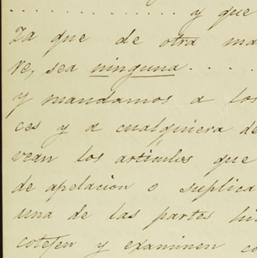 . . . . . . . . . . . . . . y que
za que de otra ma
re, sea ninguna. . . .
y mandamos a los
ces y a cualquiera de
vean los artículos que
de apelacion o suplica
una de las partes hi
cotejen y examinen co